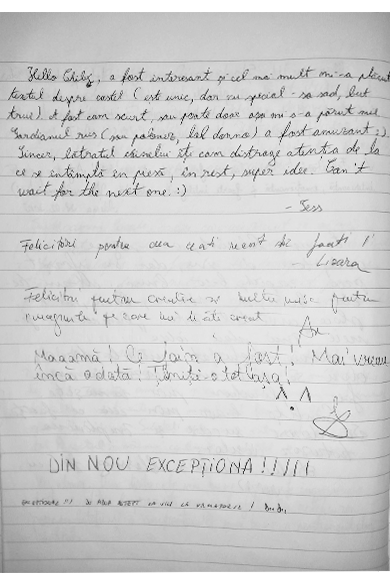 Hello Ghily, a fost interesant și cel mai mult mi-a plăcut
textul despre castel (este unic, dar nu special - so sad, but
true) A fost cam scurt, sau poate doar așa mi s-a părut mie
Gardianul rus (sau polonez, lol donno) a fost amuzant :).
Sincer, lătratul câinelui îți cam distrage atenția de la
ce se întâmplă în piesă, în rest, super idee. Can't
wait for the next one. :)
- Jess
Felicitări pentru ceea ce ați reușit să faceți !
Felicitări pentru creație și pentru
care ați creat
Maaamă! Ce fain a fost! Mai vreau
încă odată! Țineți-o tot așa!
^.^
DIN NOU EXCEPȚIONA!!!!!
!!! DE ABIA AȘTEPT SĂ VIN LA URMĂTORUL !